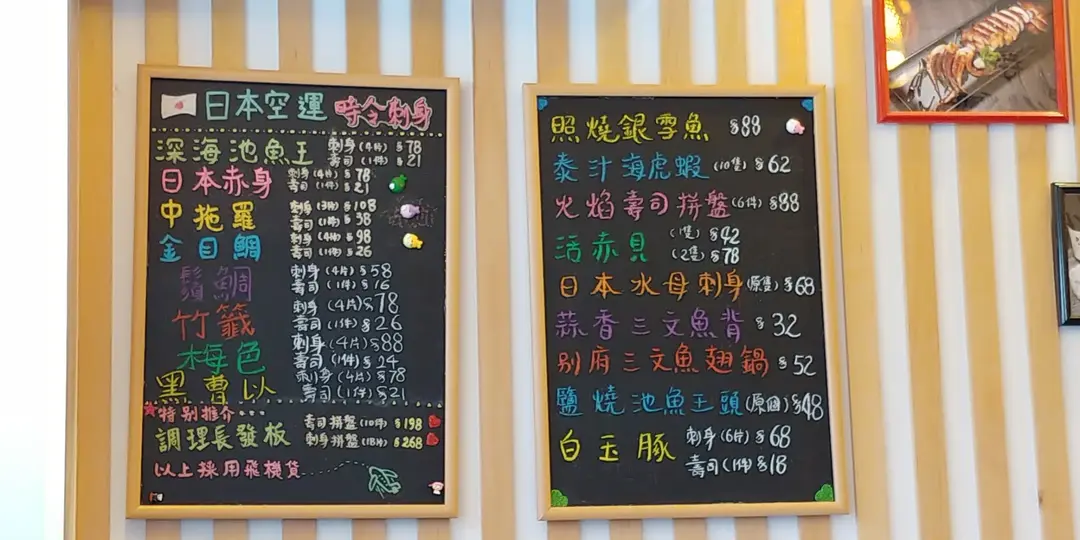 日本空運 時令刺身
深海池魚王 刺身(4片) $78
壽司(1件) $21
日本赤身 刺身(4片) $78
壽司(1件) $21
中拖羅 刺身(3片) $108
壽司(1件) $38
金目鯛 刺身(4片) $98
壽司(1件) $26
鬚鯛 刺身(4片) $58
壽司(1件) $16
竹籤 刺身(4片) $78
壽司(1件) $26
梅色 刺身(4片) $88
壽司(1件) $24
黑曹以 刺身(4片) $78
壽司(1件) $21
特別推介...
調理長發板 壽司拼盤(10件) $198
刺身拼盤(18片) $268
以上採用飛機貨
照燒銀雪魚 $88
泰汁海虎蝦(10隻) $62
火焰壽司拼盤(6件) $88
活赤貝 (1隻) $42
(2隻) $78
日本水母刺身(原隻) $68
蒜香三文魚背 $32
別府三文魚翅鍋 $52
鹽燒池魚王頭(原個) $48
白玉豚 刺身(6片) $68
壽司(1件) $18